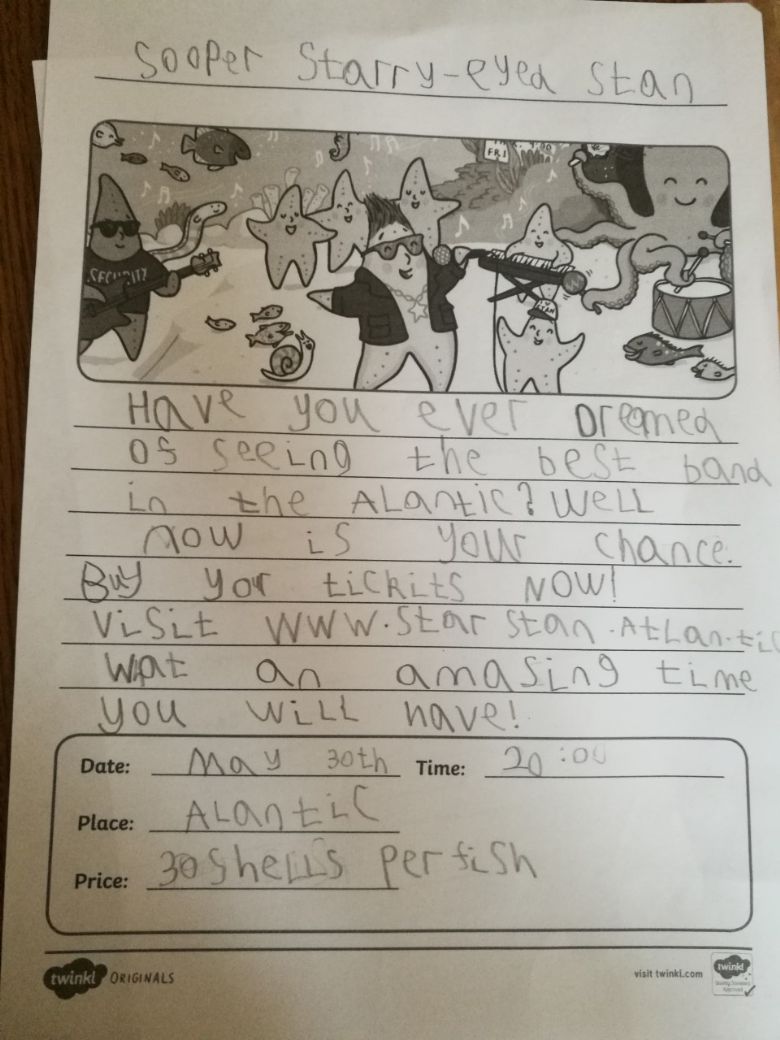 Sooper Starry-eyed Stan
FRI
SECURITY
STAN
Have you ever Dremed
of seeing the best band
in the Alantic? Well
now is your chance.
Buy your tickits NOW!
Visit WWW.Star stan.Atlan.tic
Wat an amasing time
you will have!
Date: May 30th Time: 20:00
Place: Alantic
Price: 30 shells per fish
twinkl ORIGINALS
visit twinkl.com
twinkl
Quality Standard
Approved